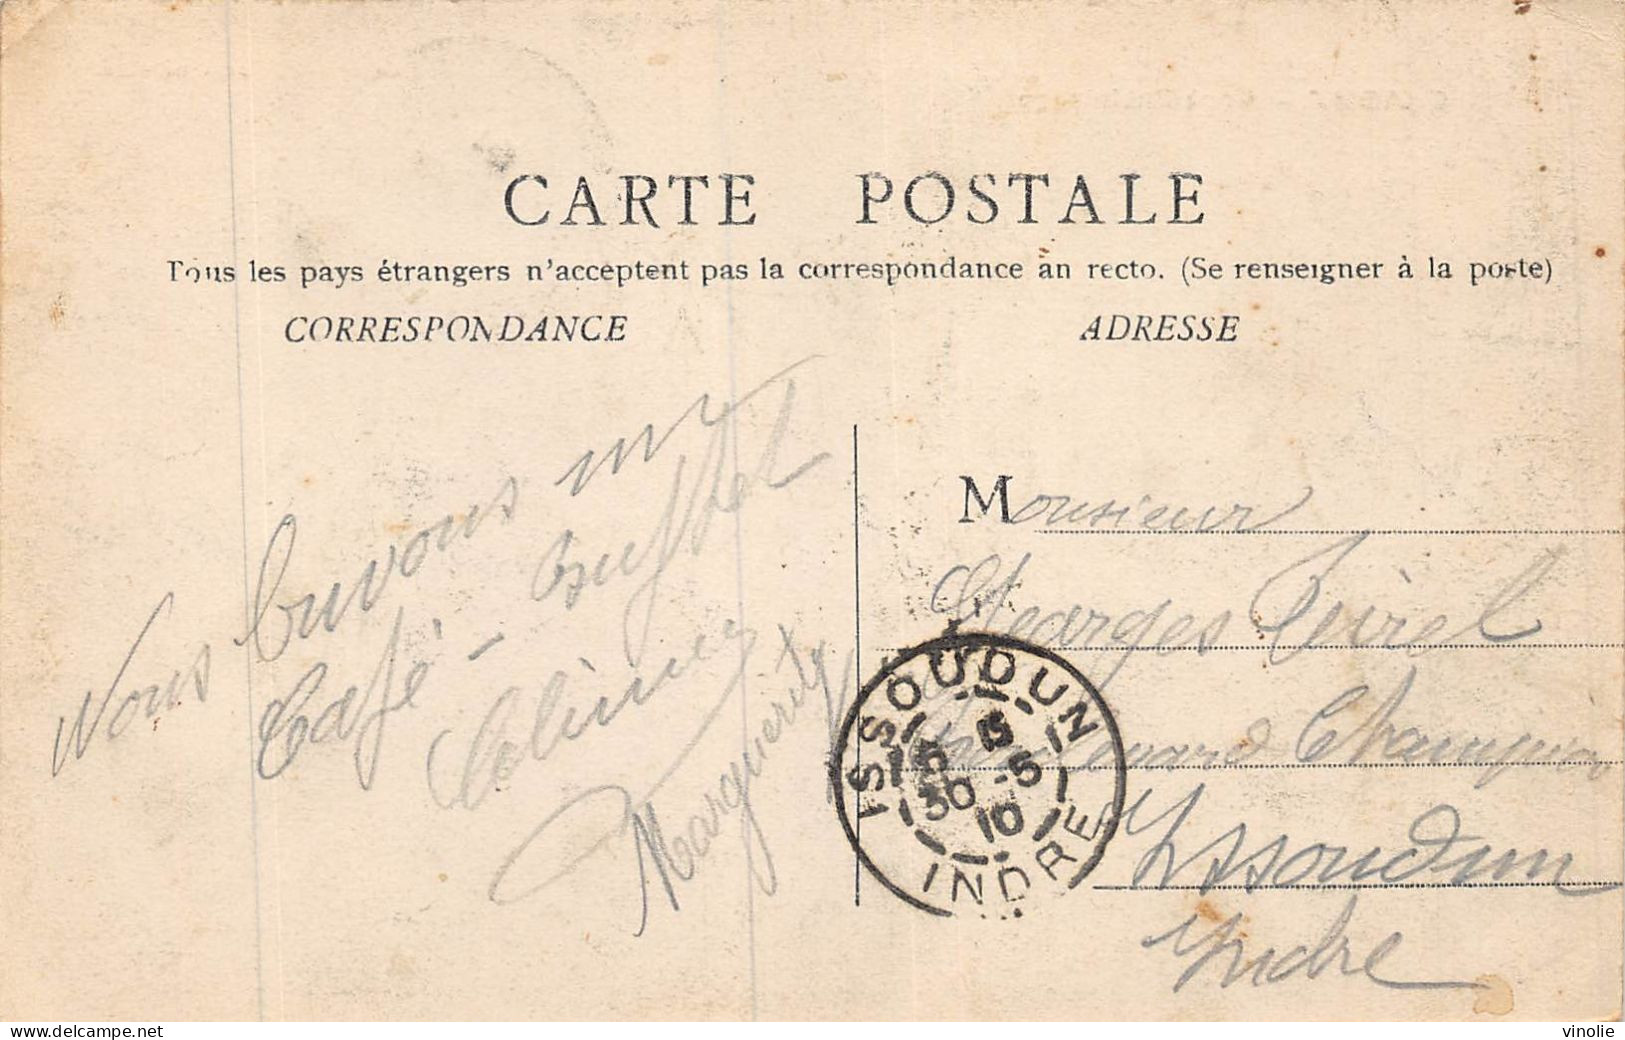 CARTE POSTALE
Tous les pays étrangers n'acceptent pas la correspondance au recto. (Se renseigner à la poste)
CORRESPONDANCE
ADRESSE
Nous buvons un
Café - buffet
Marguerite
Monsieur
Georges
Boulevard
Issoudun
Indre
ISSOUDUN
30 -5
10
INDRE
www.delcampe.net
vinolie